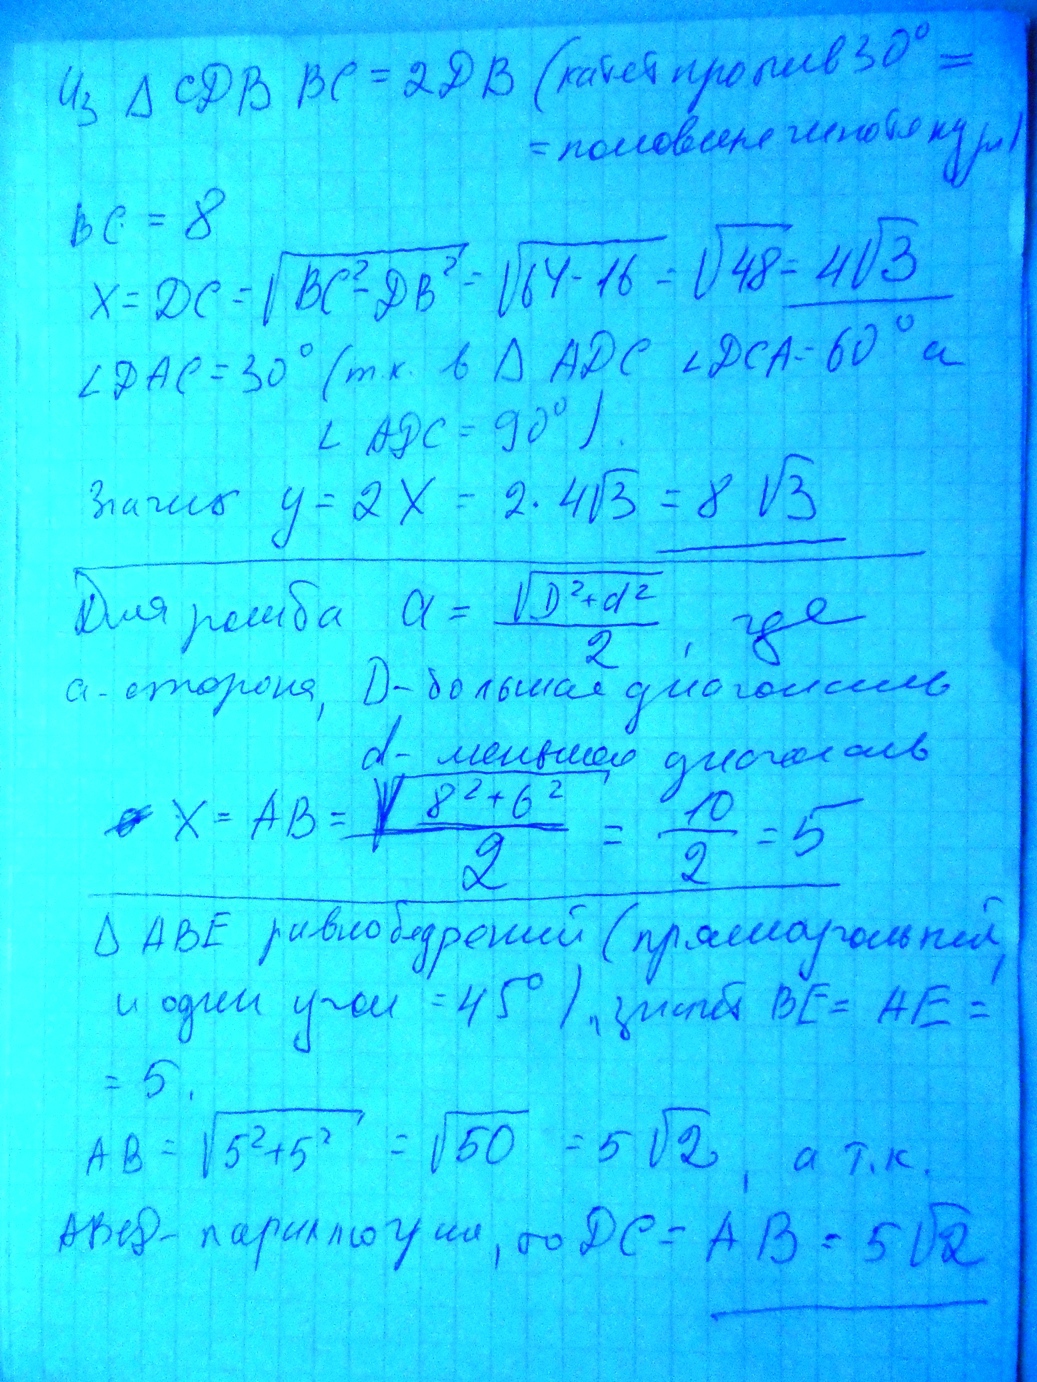 Из Δ CDB BC = 2DB (катет против 30° =
= половине гипотенузы)
BC = 8
X = DC = √(BC² - DB²) = √(64 - 16) = √48 = 4√3
∠DAC = 30° (т.к. в Δ ADC ∠DCA = 60° и
∠ ADC = 90°).
Значит y = 2X = 2·4√3 = 8√3
Для ромба a = √(D²+d²)/2, где
a - сторона, D - большая диагональ
d - меньшая диагональ
X = AB = √(8²+6²)/2 = 10/2 = 5
Δ ABE равнобедренный (прямоугольный,
и один угол = 45°), значит BE = AE =
= 5.
AB = √(5²+5²) = √50 = 5√2, а т.к.
ABCD - параллогрм, то DC = AB = 5√2